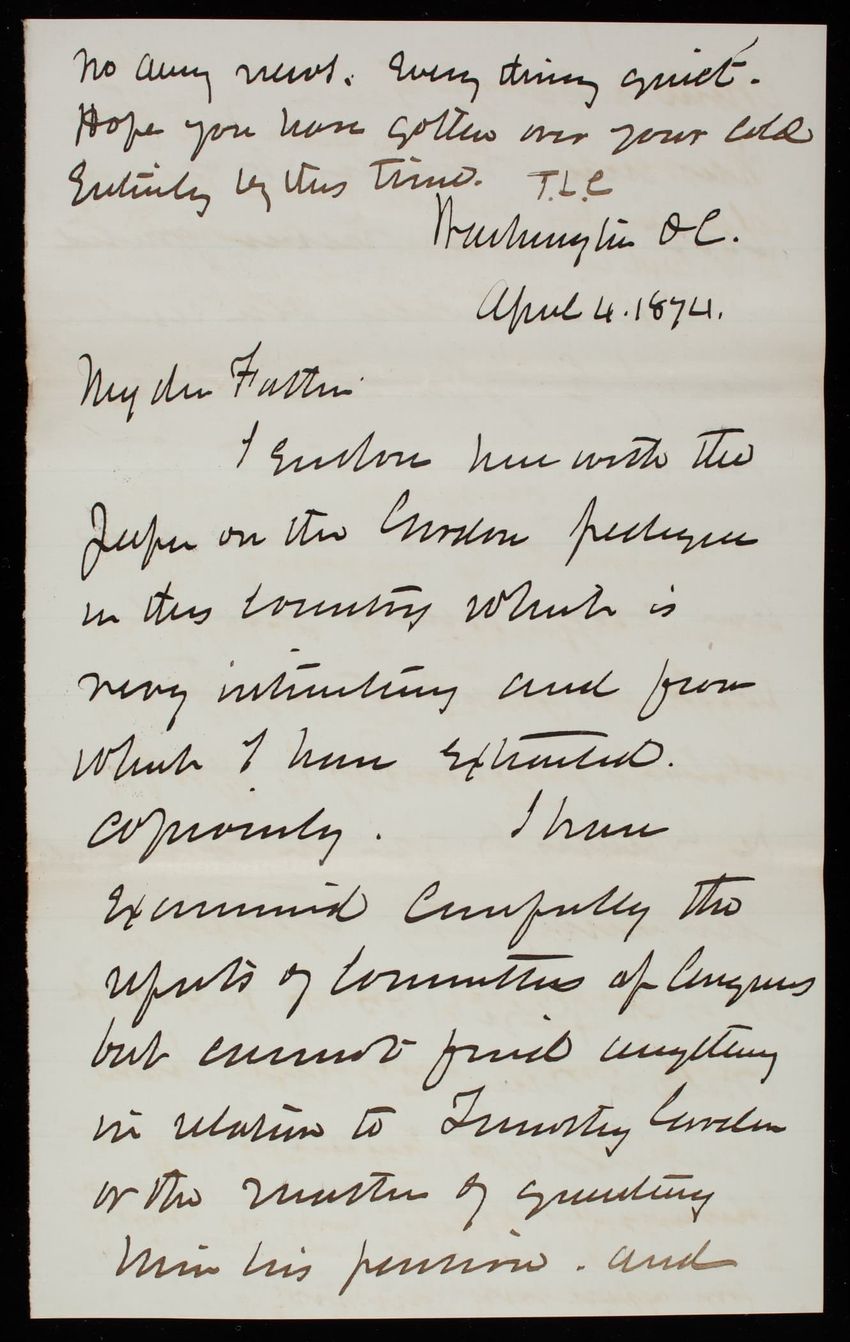 No army news. Every thing quiet.
Hope you have gotten over your cold
Entirely by this time. T.L.C
Washington D.C.
April 4. 1874.
My dear Father
I Enclose here with the
Paper on the Gordon pedigree
in this Country which is
very interesting and from
which I have Extracted.
copiously. I have
Examined Carefully the
reports of Committees of Congress
but cannot find anything
in relation to Timothy Gordon
or the matter of granting
him his pension. and